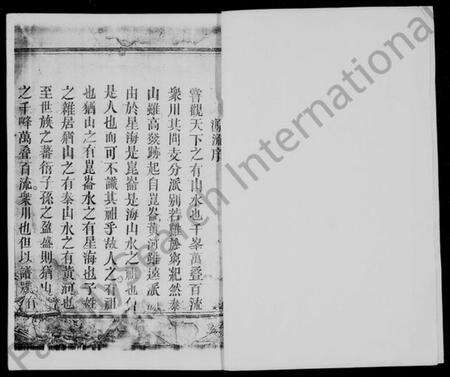 源流序
嘗觀天下之有山水也千峯萬叠百流
衆川其間支分派別若難勝窮紀然泰
山雖高發跡起自崑崙黃河雖遠派
由於星海是崑崙是海山水之祖也
是人也而可不識其祖乎故人之有祖
也猶山之有崑崙水之有星海也予
之雜居猶山之有泰山水之有黃河也
至世族之蕃衍子孫之盈盛則猶山
之千峰萬叠百流衆川也但以譜
FamilySearch International